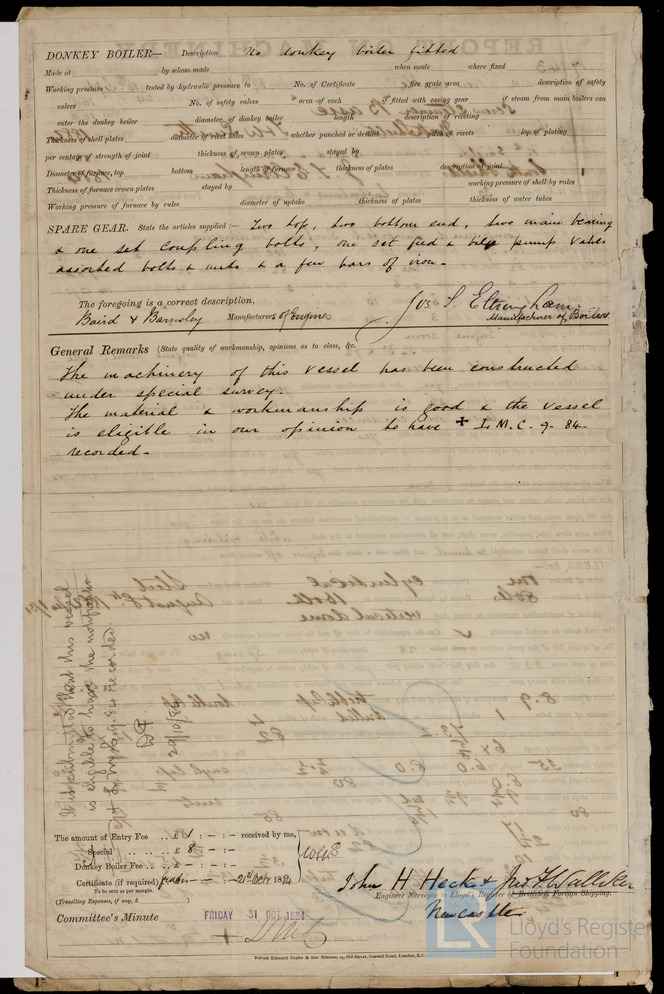 DONKEY BOILER— Description No donkey boiler fitted
Made at by whom made when made where fixed
Working pressure tested by hydraulic pressure to No. of Certificate fire grate area description of safety
valves No. of safety valves area of each if fitted with easing gear if steam from main boilers can
enter the donkey boiler diameter of donkey boiler length description of riveting
Thickness of shell plates diameter of rivet holes whether punched or drilled pitch of rivets lap of plating
per centage of strength of joint thickness of crown plates stayed by
Diameter of furnace, top bottom length of furnace thickness of plates description of joint
Thickness of furnace crown plates stayed by working pressure of shell by rules
Working pressure of furnace by rules diameter of uptake thickness of plates thickness of water tubes
SPARE GEAR. State the articles supplied:— Two top, two bottom end, two main bearing
& one set coupling bolts, one set feed & bilge pump valves
assorted bolts & nuts & a few bars of iron.
The foregoing is a correct description,
Baird & Barnsley Manufacturers of Engines Jos. T. Eltringham Manufacturer of Boilers
General Remarks (State quality of workmanship, opinions as to class, &c.
The machinery of this vessel has been constructed
under special survey.
The material & workmanship is good & the vessel
is eligible in our opinion to have ✠ L.M.C. 9-84
recorded.
It is submitted that this vessel
is eligible to have the notification
recorded.
The amount of Entry Fee .. £ 1 : - : - received by me,
Special .. £ 8 : - : -
Donkey Boiler Fee .. £ - : - : -
Certificate (if required) - : - 21st Oct 1884
To be sent as per margin.
(Travelling Expenses, if any, £ )
John H Heck & Jno. H Walliker
Engineer Surveyor to Lloyd's Register of British & Foreign Shipping.
Newcastle
Committee's Minute FRIDAY 31 OCT 1884
LR Lloyd's Register
Foundation